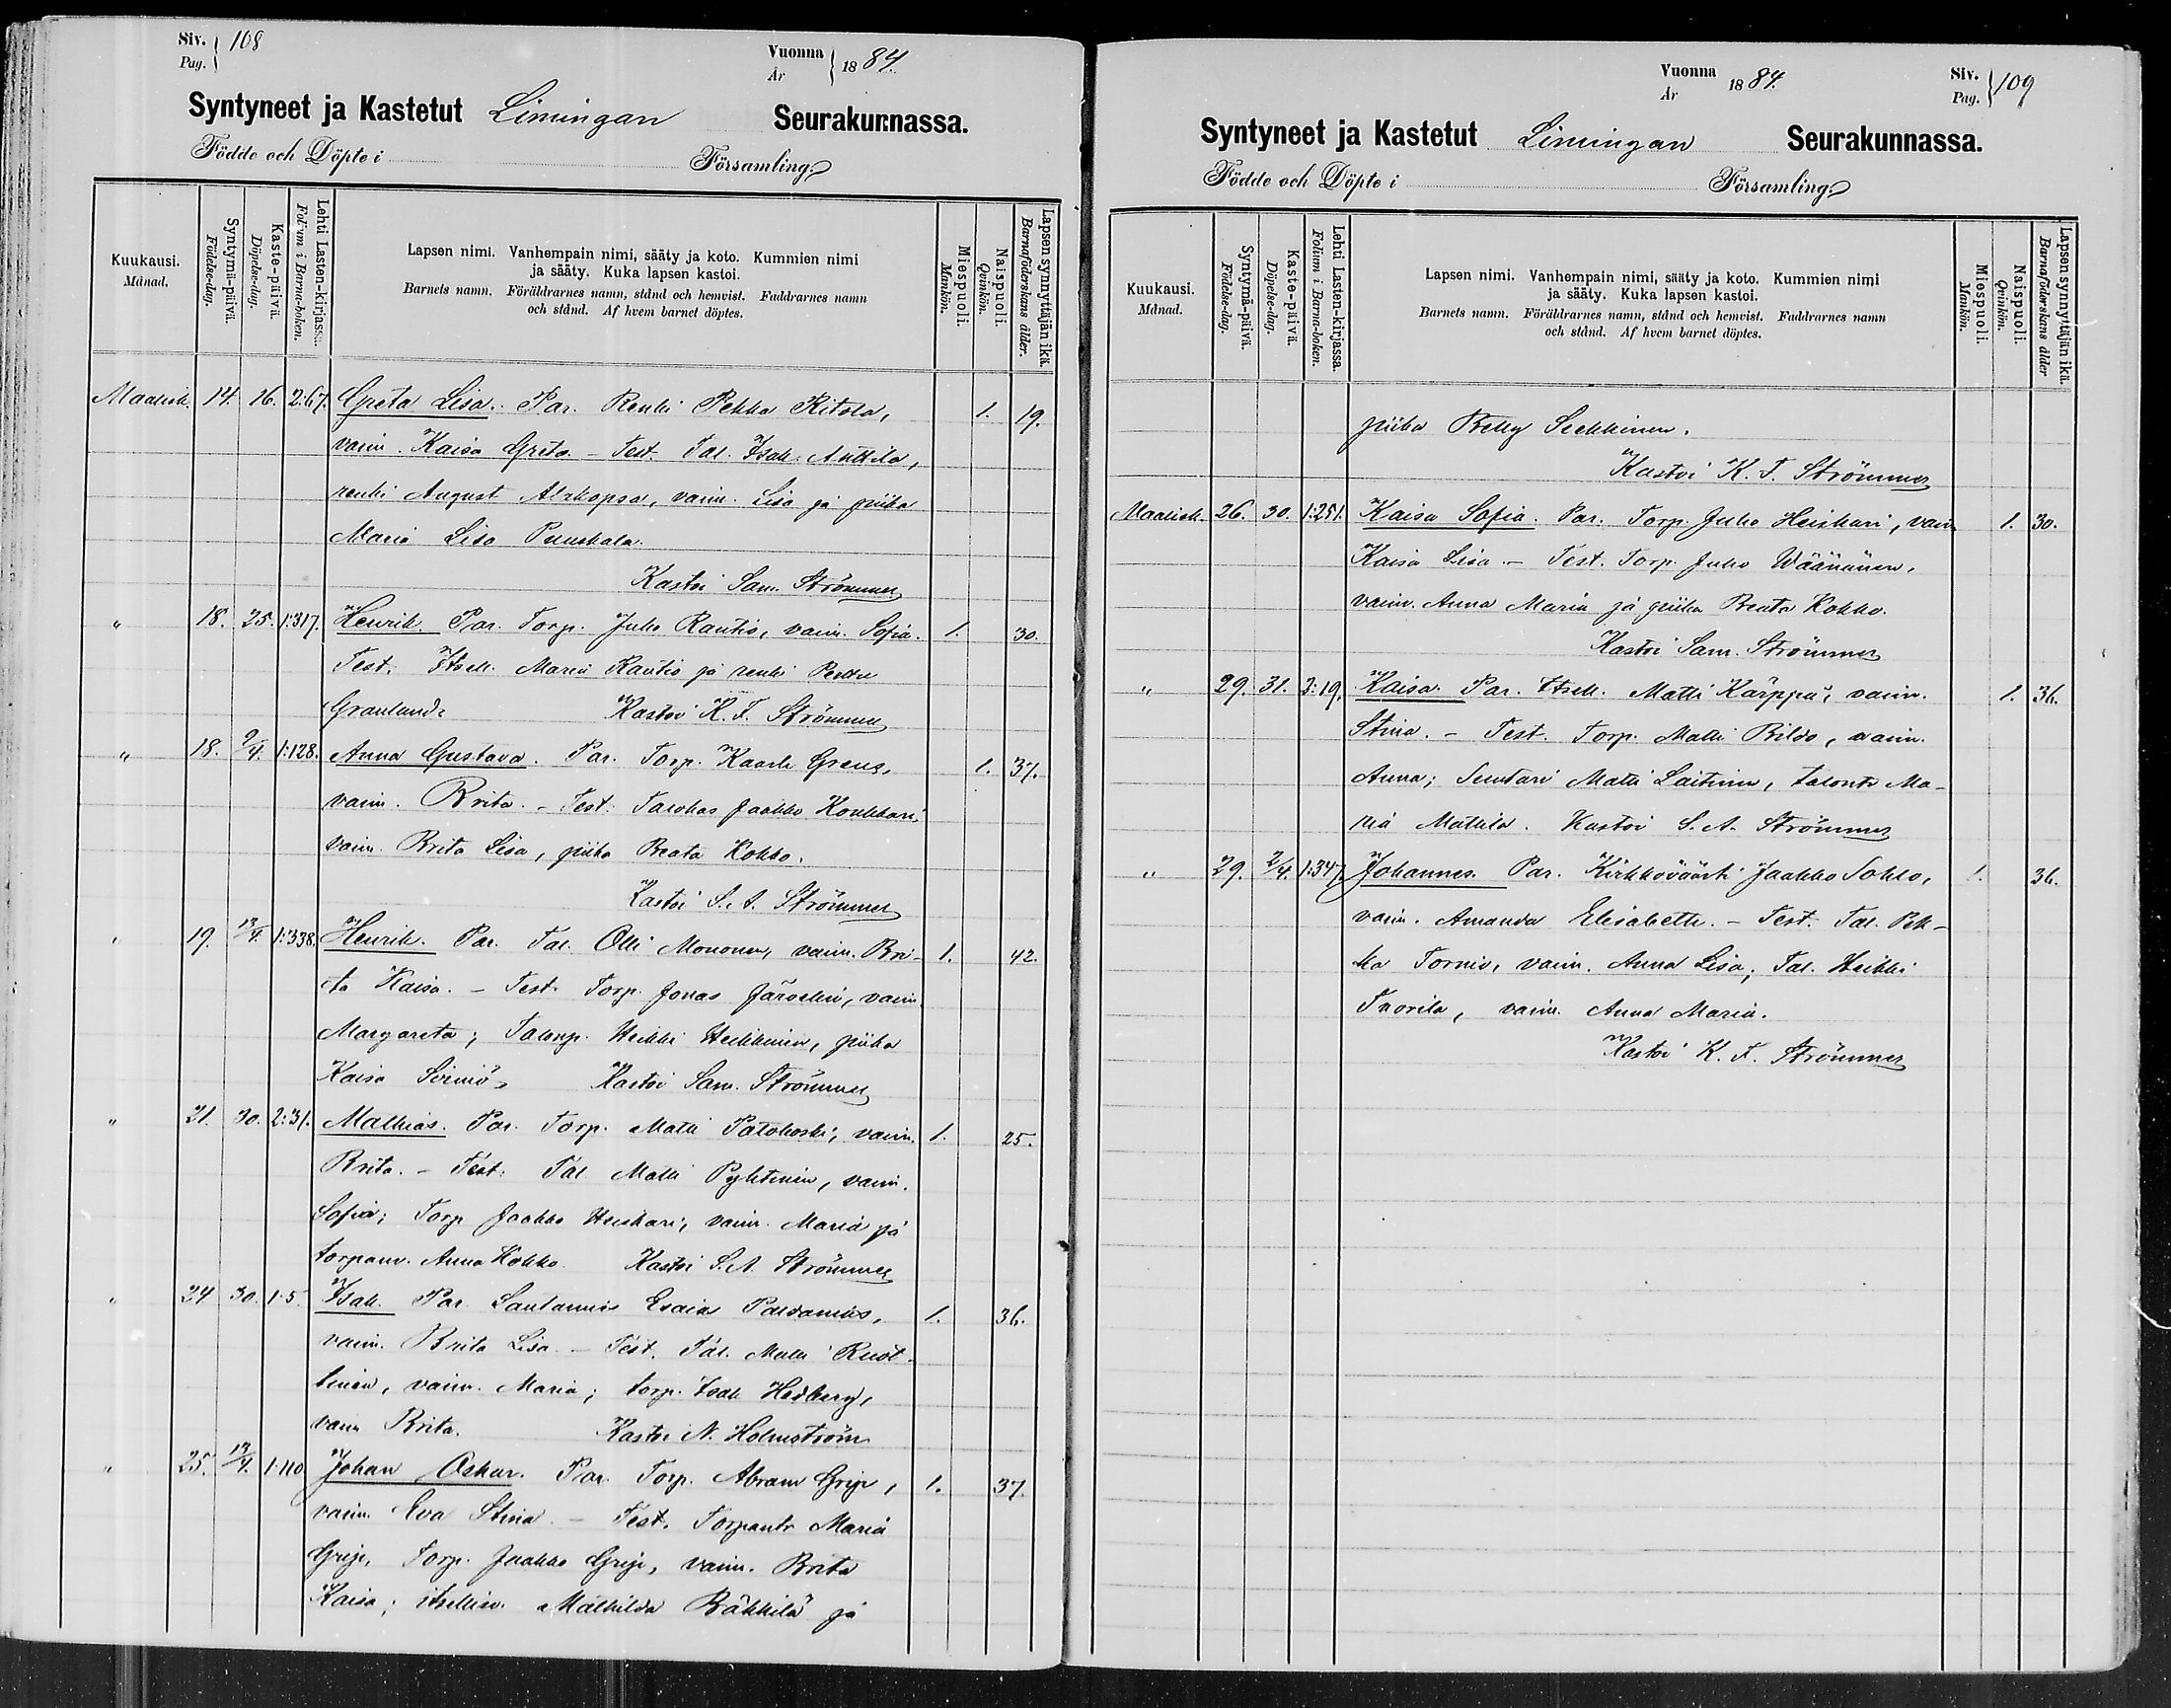 Siv. 108
Pag.
Vuonna 1884.
År
Syntyneet ja Kastetut Limingan Seurakunnassa.
Födde och Döpte i Församling.
Kuukausi.
Månad.
Syntymä-päivä.
Födelse-dag.
Kaste-päivä.
Döpelse-dag.
Lehti Lasten-kirjassa.
Folium i Barna-boken.
Lapsen nimi. Vanhempain nimi, sääty ja koto. Kummien nimi
ja sääty. Kuka lapsen kastoi.
Barnets namn. Föräldrarnes namn, stånd och hemvist. Faddrarnes namn
och stånd. Af hvem barnet döptes.
Miespuoli.
Mankön.
Naispuoli.
Qvinkön.
Lapsen synnyttäjän ikä.
Barnaföderskans ålder.
Maalisk. 14. 16. 2:67. Greta Lisa. Par. Renki Pekka Ritola, 1. 19.
vaim. Kaisa Greta. – Test. Tal. Isak Anttila,
renki August Alakopsa, vaim. Lisa ja piika
Maria Lisa Puuskala.
Kastoi Sam. Strömmer
" 18. 25. 1:317. Henrik. Par. Torp. Juho Rautio, vaim. Sofia. 1. 30.
Test. Itsell. Maria Rautio ja renki Pekka
Granlund. Kastoi K. F. Strömmer
" 18. 9/4. 1:128. Anna Gustava. Par. Torp. Kaarle Greus, 1. 37.
vaim. Brita. – Test. Talokas Jaakko Konkkari,
vaim. Brita Lisa, piika Beata Kokko.
Kastoi S. A. Strömmer
" 19. 13/4. 1:338. Henrik. Par. Tal. Olli Mononen, vaim. Bri- 1. 42.
ta Kaisa. – Test. Torp. Jonas Järvelin, vaim.
Margareta; Talonp. Heikki Heikkinen, piika
Kaisa Sirniö. Kastoi Sam. Strömmer
" 21. 30. 2:31. Mathias. Par. Torp. Matti Patokoski, vaim. 1. 25.
Brita. – Test. Tal. Matti Pyhtinen, vaim.
Sofia; Torp. Jaakko Heiskari, vaim. Maria ja
torpanv. Anna Kokko. Kastoi S. A. Strömmer
" 24 30. 1:5. Isak. Par. Lautamies Esaias Pardanius, 1. 36.
vaim. Brita Lisa. – Test. Tal. Matti Ruot-
tinen, vaim. Maria; torp. Isak Hedberg,
vaim Brita. Kastoi N. Holmström
" 25. 13/4. 1:110. Johan Oskar. Par. Torp. Abram Grip, 1. 37.
vaim. Eva Stina. – Test. Torpantr Maria
Grip, Torp. Jaakko Grip, vaim. Brita
Kaisa; itsellisn. Mathilda Räkkilä ja
Vuonna 1884.
År
Siv. 109
Pag.
Syntyneet ja Kastetut Limingan Seurakunnassa.
Födde och Döpte i Församling.
Kuukausi.
Månad.
Syntymä-päivä.
Födelse-dag.
Kaste-päivä.
Döpelse-dag.
Lehti Lasten-kirjassa.
Folium i Barna-boken.
Lapsen nimi. Vanhempain nimi, sääty ja koto. Kummien nimi
ja sääty. Kuka lapsen kastoi.
Barnets namn. Föräldrarnes namn, stånd och hemvist. Faddrarnes namn
och stånd. Af hvem barnet döptes.
Miespuoli.
Mankön.
Naispuoli.
Qvinkön.
Lapsen synnyttäjän ikä.
Barnaföderskans ålder
piika Betty
Kastoi K. F. Strömmer
Maalisk. 26. 30. 1:251. Kaisa Sofia. Par. Torp. Juho Heiskari, vaim 1. 30.
Kaisa Lisa. – Test. Torp. Juho Wäänänen,
vaim. Anna Maria ja piika Beata Kokko.
Kastoi Sam. Strömmer
" 29. 31. 2:19. Kaisa. Par. Itsell. Matti Kärppä, vaim. 1. 36.
Stina. – Test. Torp. Matti Rildo, vaim.
Anna; Suutari Matti Laitinen, talontr Ma-
ria Matilda. Kastoi S. A. Strömmer
" 29. 2/4. 1:347. Johannes. Par. Kirkkoväärti Jaakko Sohlo, 1. 36.
vaim. Amanda Elisabeth. – Test. Tal. Pek-
ka Tornio, vaim. Anna Lisa; Tal. Heikki
Tuorila, vaim. Anna Maria.
Kastoi K. F. Strömmer